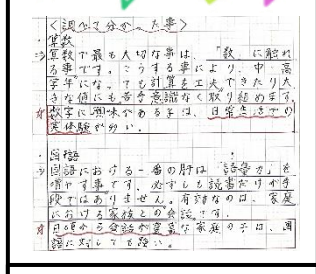 <調べて分かった事>
・算数
⇒算数で最も大切な事は、「数」に触れ
る事です。こうする事により、中・高
学年になっても計算を工夫できたり大
きな値にも苦手意識なく取り組めます。
☆数字に興味がある子は、日常生活での
実体験が多い。
・国語
⇒国語における一番の肝は「語彙力」を
増やす事です。必ずしも読書だけが手
段ではありません。有効なのは、家庭
における家族との会話です。
☆日頃から会話が豊富な家庭の子は、国
語に対しても強い。